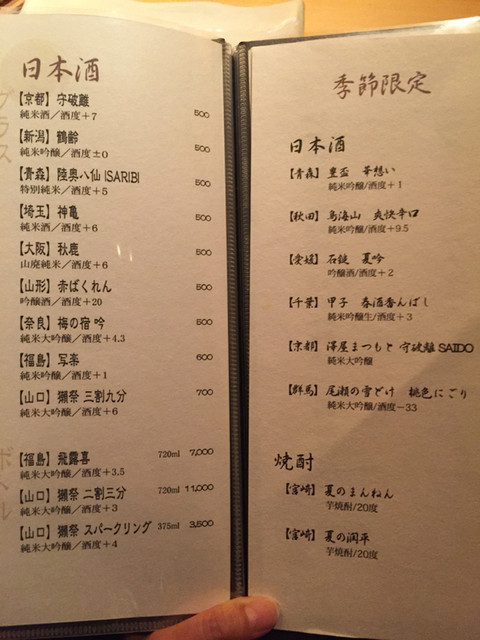 日本酒
グラス
【京都】守破離
純米酒／酒度＋7
500
【新潟】鶴齢
純米吟醸／酒度±0
500
【青森】陸奥八仙 ISARIBI
特別純米／酒度＋5
500
【埼玉】神亀
純米酒／酒度＋6
500
【大阪】秋鹿
山廃純米／酒度＋6
500
【山形】赤ばくれん
吟醸酒／酒度＋20
500
【奈良】梅の宿 吟
純米大吟醸／酒度＋4.3
500
【福島】写楽
純米吟醸／酒度＋1
600
【山口】獺祭 三割九分
純米大吟醸／酒度＋6
700
ボトル
【福島】飛露喜 720ml 7,000
純米大吟醸／酒度＋3.5
【山口】獺祭 二割三分 720ml 11,000
純米大吟醸／酒度＋3
【山口】獺祭 スパークリング 375ml 3,500
純米大吟醸／酒度＋4
季節限定
日本酒
【青森】豊盃 華想い
純米吟醸/酒度＋1
【秋田】鳥海山 爽快辛口
純米吟醸/酒度＋9.5
【愛媛】石鎚 夏吟
吟醸酒/酒度＋2
【千葉】甲子 春酒香んばし
純米吟醸生/酒度＋3
【京都】澤屋まつもと 守破離 SAIDO
純米大吟醸
【群馬】尾瀬の雪どけ 桃色にごり
純米大吟醸/酒度－33
焼酎
【宮崎】夏のまんねん
芋焼酎/20度
【宮崎】夏の潤平
芋焼酎/20度